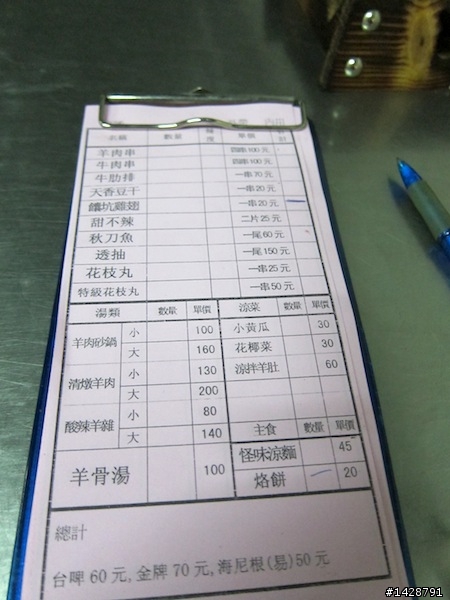 內用
名稱 數量 辣度 單價
羊肉串 四串100元
牛肉串 四串100元
牛肋排 一串70元
天香豆干 一串20元
饞坑雞翅 一串20元
甜不辣 二片25元
秋刀魚 一尾60元
透抽 一尾150元
花枝丸 一串25元
特級花枝丸 一串50元
湯類 數量 單價 涼菜 數量 單價
羊肉砂鍋 小 100 小黃瓜 30
大 160 花椰菜 30
清燉羊肉 小 130 涼拌羊肚 60
大 200
酸辣羊雜 小 80
大 140 主食 數量 單價
羊骨湯 100 怪味涼麵 45
烙餅 20
總計
台啤60元,金牌70元,海尼根(易)50元
#1428791